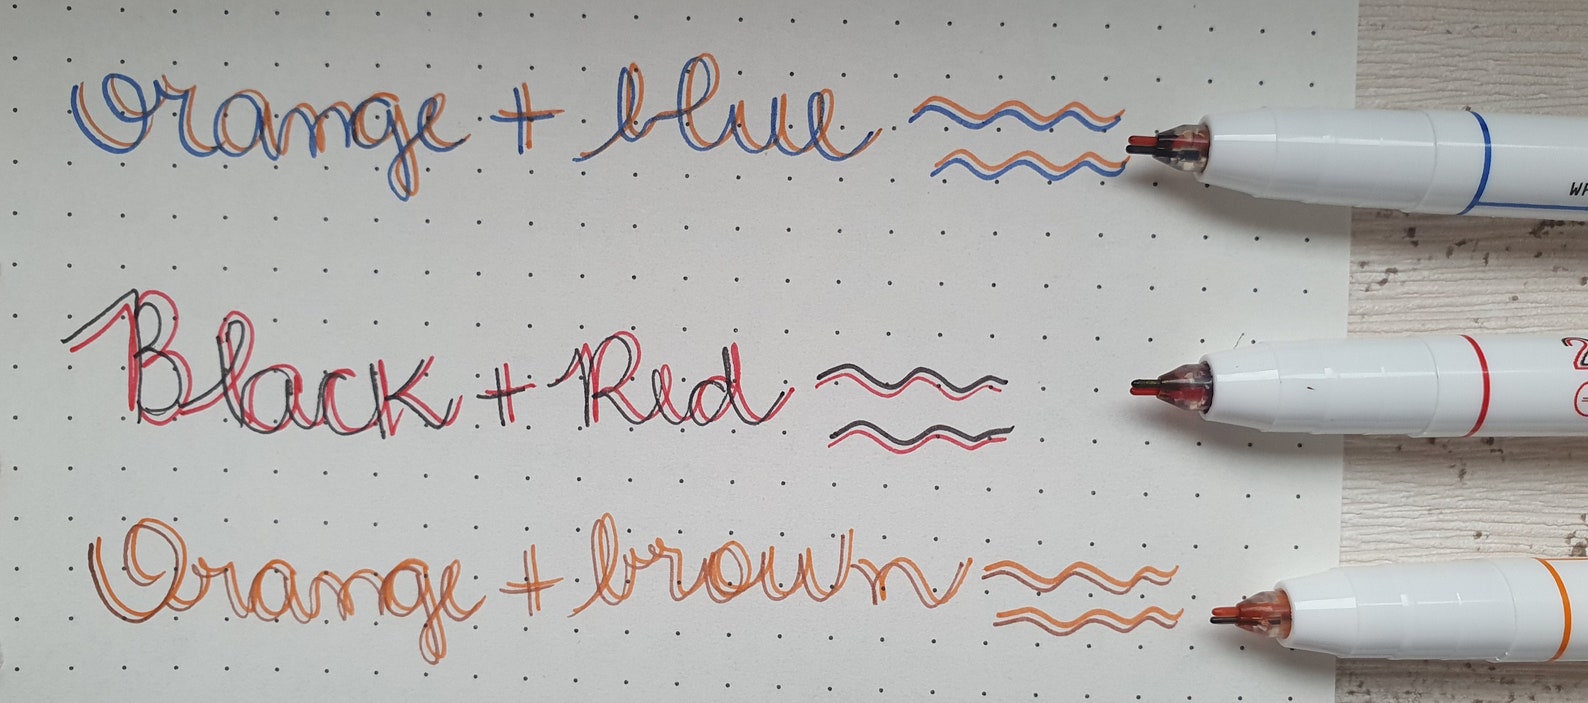 Orange + blue
Black + Red
Orange + brown